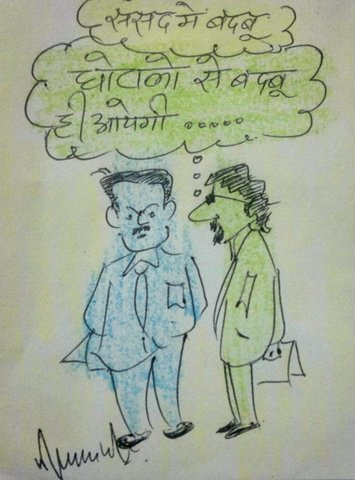 संसद में बदबू
घोटालो से बदबू
ही आयेगी .....